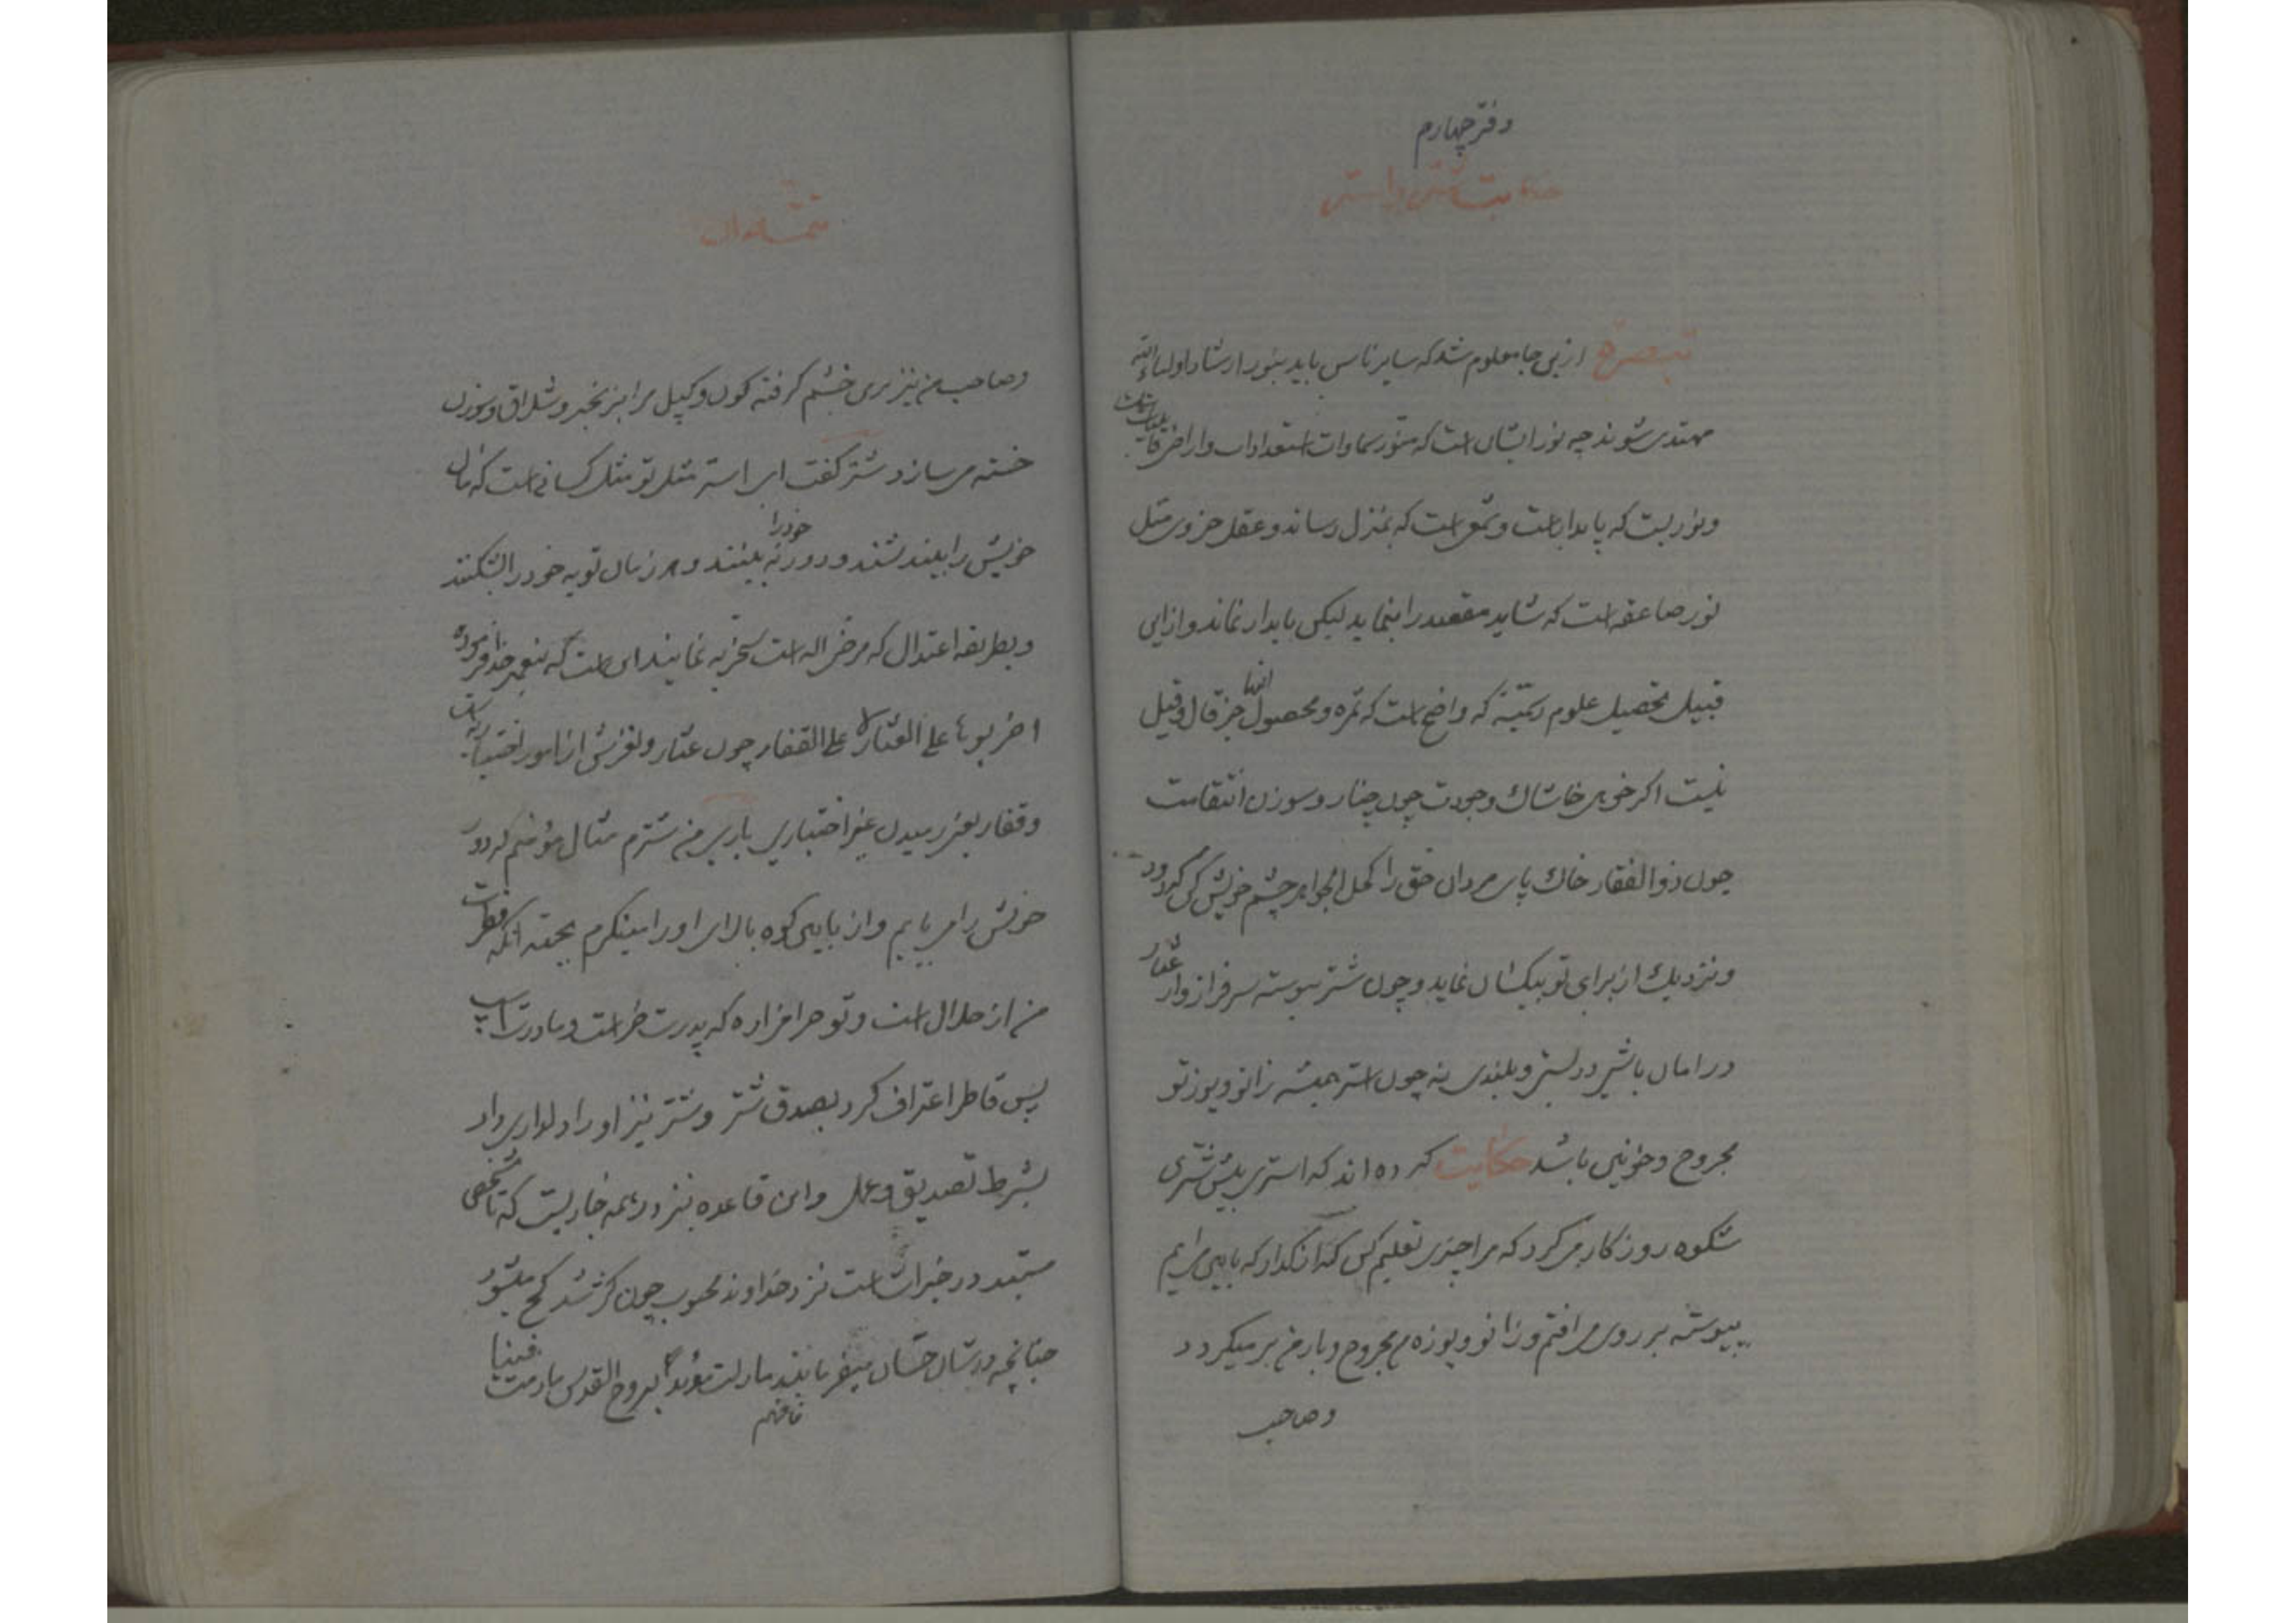 دفتر چهارم
حکایت شتر و استر
تبصره ازین جا معلوم شد که سایر ناس باید بنور ارشاد اولیاء الله
مهتدی شوند چه نور ایشان است که منور سماوات استعدادات و اراضی قابلیات است
و نوریست که پایدار است و شمع است که بمنزل رساند و عقل جزوی مثل
نور صاعقه است که شاید مقصد را بنماید لیکن پایدار نماند و ازین
قبیل تحصیل علوم رسمیه که واضح است که ثمره و محصول آنها جز قال و قیل
نیست اگر خوهی خاشاک وجودت چون چنار و سوزن استقامت
چون ذوالفقار خاک پای مردان حق را کحل الجواهر چشم خویش کن که دور
و نزدیک از برای تو یکسان نماید و چون شتر پیوسته سرفراز و از عثار
در امان باشی در پستی و بلندی نه چون استر همیشه زانو و پوز تو
مجروح و خونین باشد حکایت کرده اند که استری پیش شتری
شکوه روزگار میکرد که مرا چیزی تعلیم کن که در پایین مرا هم
پیوسته بر روی می افتم و زانو و پوزه ام مجروح و بار من بر میگردد
و صاحب
تتمه احوال
و صاحب من نیز بر من خشم گرفته کون و کپل مرا بزنجیر و شلاق و سوزن
خسته می سازد شتر گفت ای استر مثل تو مثل کسانی است که مآل
خویش را بلند نشند و دور خود را نه بینند و هر زمان توبه خود را بشکنند
و بطریقه اعتدال که مرضی اله است سخریه نمایند این است که پیغمبر خدا فرموده
اضربوها علی العثار لا علی القفار چون عثار و لغزش از امور اختیاریه است
و قفار یعنی رمیدن غیر اختیاری باری من شترم مثال مؤمنم که دور
خویش را می یابم و از پایین کوه بالای او را مینگرم بجهة آنکه فطرت
من از حلال است و تو حرامزاده که پدرت خر است و مادرت اسب
پس قاطر اعتراف کرد بصدق شتر و شتر نیز او را دلداری داد
بشرط تصدیق و عمل و این قاعده نیز در همه جاریست که تا شخصی
مستبد در خیرات است نزد خداوند محبوب چون کژ شد کج میشود
چنانچه در شان حسان میفرمایند مازلت مؤیدا بروح القدس مادمت فینا
فافهم